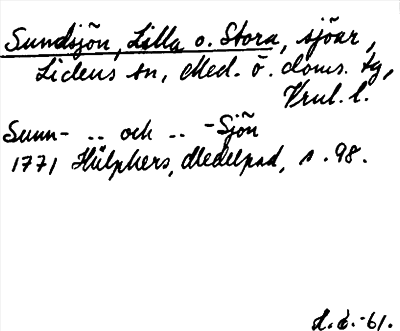 Sundsjön, Lilla o. Stora, sjöar,
Lidens sn, Med. ö. doms. tg,
Vnul. l.
Sunn- .. och .. -Sjön
1771 Hülphers, Medelpad, s. 98.
-61.